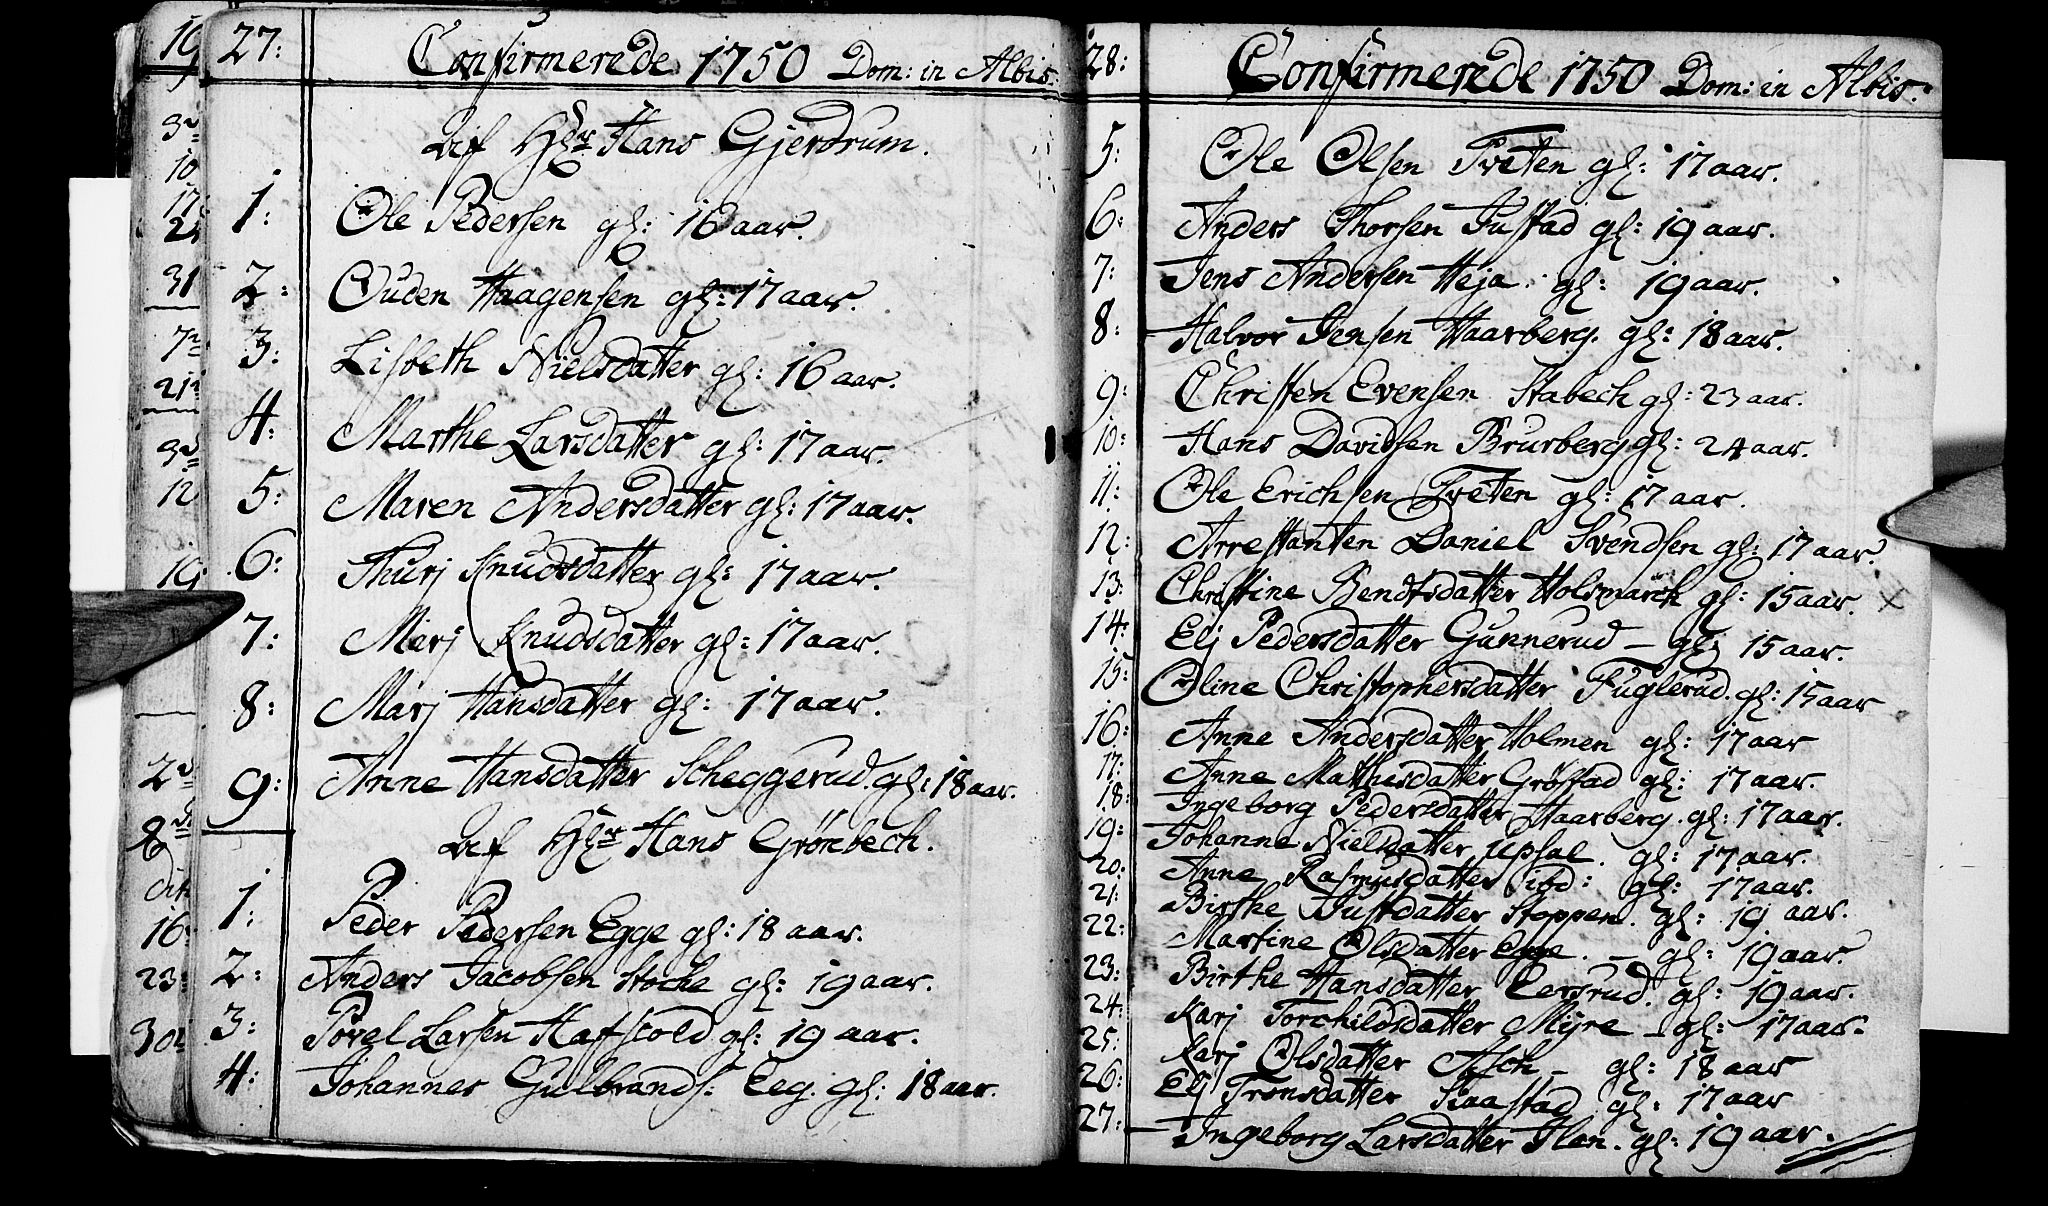 27: Confirmerede 1750 Dom: in Albis.
Af Hr Hans Gjerdrum.
1: Ole Pedersen gl: 16 aar.
2: Ouden Haagensen gl: 17 aar.
3: Lisbeth Nielsdatter gl: 16 aar.
4: Marthe Larsdatter gl: 17 aar.
5: Maren Andersdatter gl: 17 aar.
6: Thurj Knudsdatter gl: 17 aar.
7: Marj Knudsdatter gl: 17 aar.
8: Marj Hansdatter gl: 17 aar.
9: Anne Hansdatter Scheggerud. gl: 18 aar.
Af Hr Hans Grönbech.
1: Peder Pedersen Egge gl: 18 aar.
2: Anders Jacobsen Stocke gl: 19 aar.
3: Povel Larsen Hafscold gl: 19 aar.
4: Johannes Gulbrands: Eeg. gl: 18 aar.
28: Confirmerede 1750 Dom: in Albis.
5: Ole Olsen Tveten gl: 17 aar.
6: Anders Thorsen Justad gl: 19 aar.
7: Jens Andersen Heja. gl: 19 aar.
8: Halvor Jensen Haarberg. gl: 18 aar.
9: Christen Evensen Stabech gl: 23 aar.
10: Hans Davidsen Brurberg gl: 24 aar.
11: Ole Erichsen Tveten gl: 17 aar.
12: Arrestanten Daniel Svendsen gl: 17 aar.
13: Christine Bendtsdatter Holsmarch gl: 15 aar. x
14: Elj Pedersdatter Gunnerud – gl: 15 aar.
15: Oline Christophersdatter Fuglerud. gl: 15 aar
16: Anne Andersdatter Holmen gl: 17 aar
17: Anne Mathisdatter Gröstad gl: 17 aar.
18: Ingeborg Pedersdatter Haarberg. gl: 17 aar.
19: Johanne Nielsdatter Upsal. gl: 17 aar.
20: Anne Rasmusdatter ibd: gl: 17 aar.
21: Birthe Justdatter Stoppen. gl: 19 aar.
22: Martine Olsdatter Egge. – gl: 19 aar.
23: Birthe Hansdatter Eersrud. gl: 19 aar.
24: Karj Torchildsdatter Myre – gl: 17 aar.
25: Karj Olsdatter Asch – gl: 18 aar
26: Elj Tronsdatter Skaastad gl: 17 aar
27: Ingeborg Larsdatter Flan. gl: 19 aar.